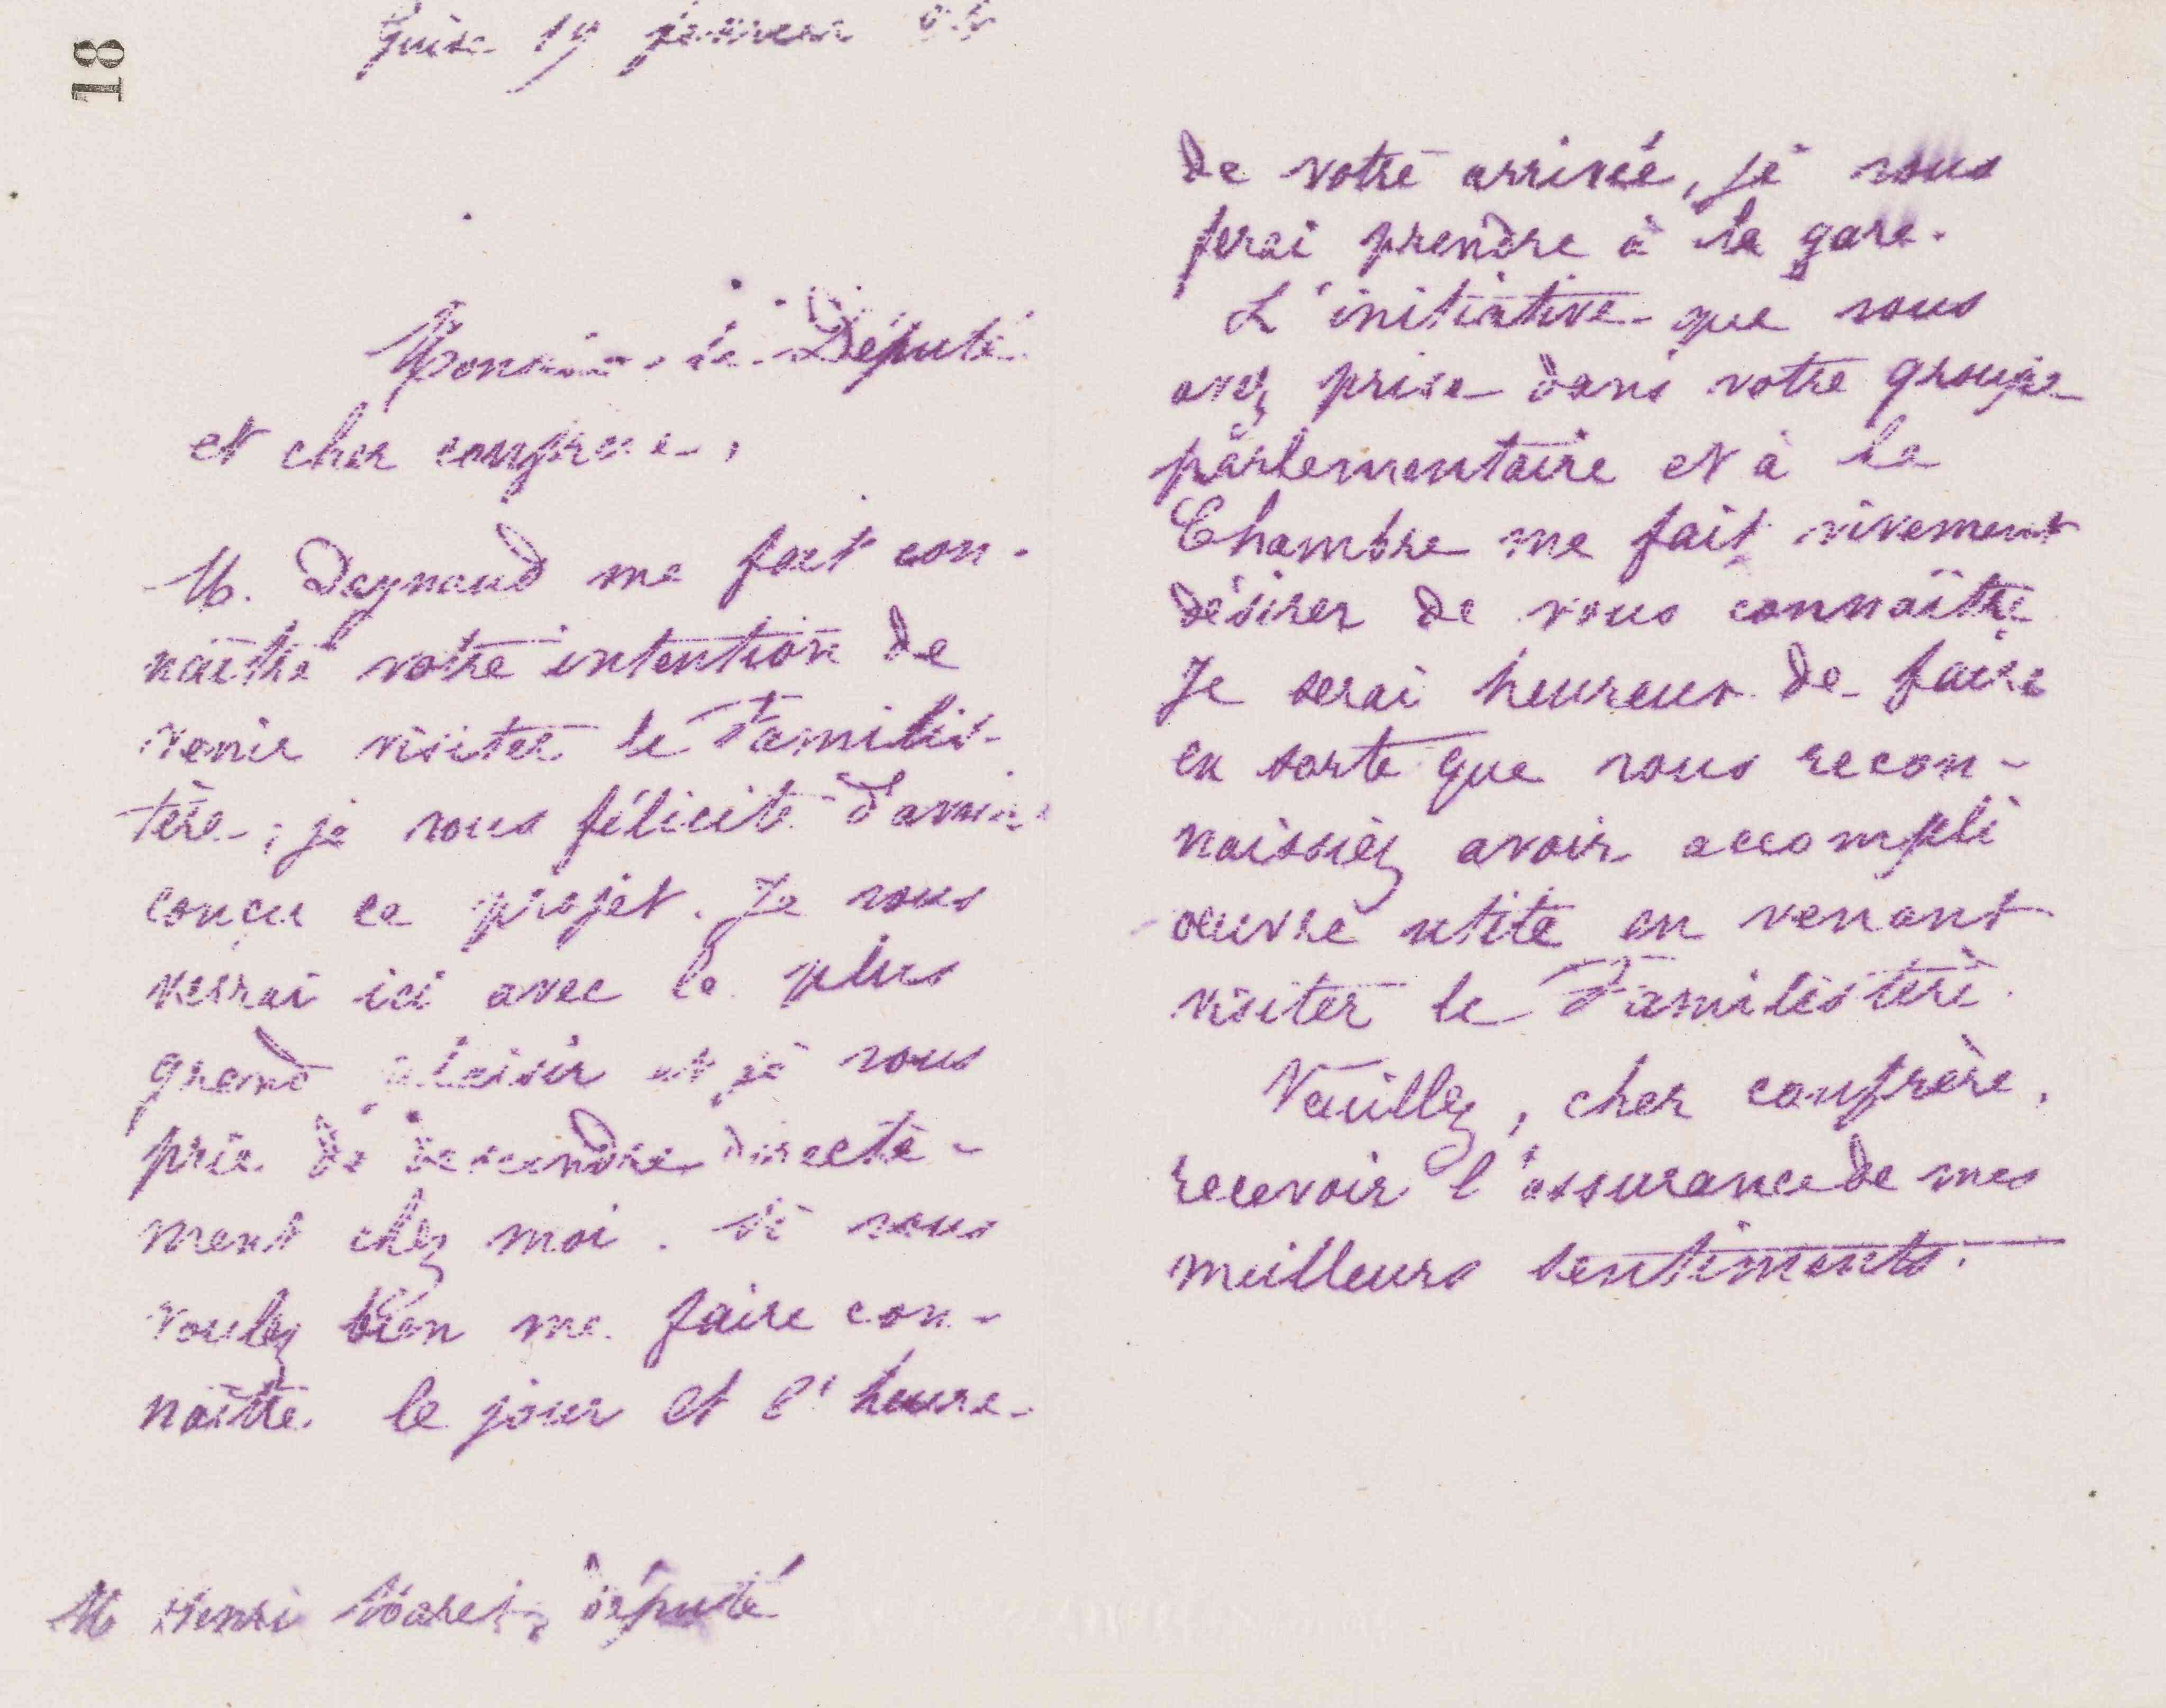 18
Guise 19 janvier
Monsieur le Député
et cher confrère,
M. Deynaud me fait con-
naître votre intention de
venir visiter le Familis-
tère ; je vous félicite d'avoir
conçu ce projet. Je vous
verrai ici avec le plus
grand plaisir et je vous
prie de descendre directe-
ment chez moi. Si vous
voulez bien me faire con-
naître le jour et l'heure
M Henri Maret, député
de votre arrivée, je vous
ferai prendre à la gare.
L'initiative que vous
avez prise dans votre groupe
parlementaire et à la
Chambre me fait vivement
désirer de vous connaître
Je serai heureux de faire
en sorte que vous recon-
naissiez avoir accompli
œuvre utile en venant
visiter le Familistère.
Veuillez, cher confrère,
recevoir l'assurance de mes
meilleurs sentiments.